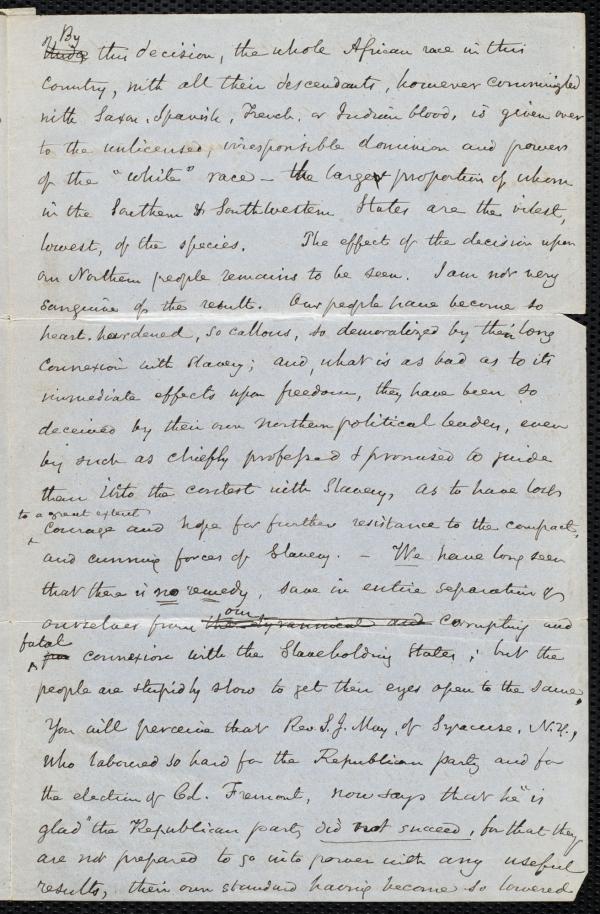 By
this decision, the whole African race in this
Country, with all their descendants, however commingled
with Saxon, Spanish, French, or Indian blood, is given over
to the unlicensed, irresponsible dominion and powers
of the "white" race – the larger proportion of whom
in the Southern & Southwestern States are the vilest,
lowest, of the species. The effect of the decision upon
our Northern people remains to be seen. I am not very
sanguine of the result. Our people have become so
heart-hardened, so callous, so demoralized by their long
connexion with Slavery; and, what is as bad as to its
immediate effects upon freedom, they have been so
deceived by their own northern political leaders, even
by such as chiefly professed & promised to guide
them into the contest with Slavery, as to have lost
to a great extent
courage and hope for further resistance to the compact,
and cunning forces of Slavery. – We have long seen
that there is no remedy, save in entire separation of
our
ourselves from the tyrannical and corrupting and
fatal
connexion with the Slaveholding States; but the
people are stupidly slow to get their eyes open to the same.
You will perceive that Rev. S. J. May, of Syracuse, N.Y.,
who laboured so hard for the Republican party and for
the election of Col. Fremont, now says that he "is
glad" the Republican party did not succeed, for that they
are not prepared to go into power with any useful
results, their own standard having become so lowered